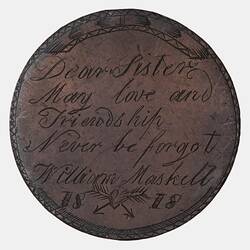 Dear Sister
May love and
Friendship
Never be forgot
William Maskell
1818